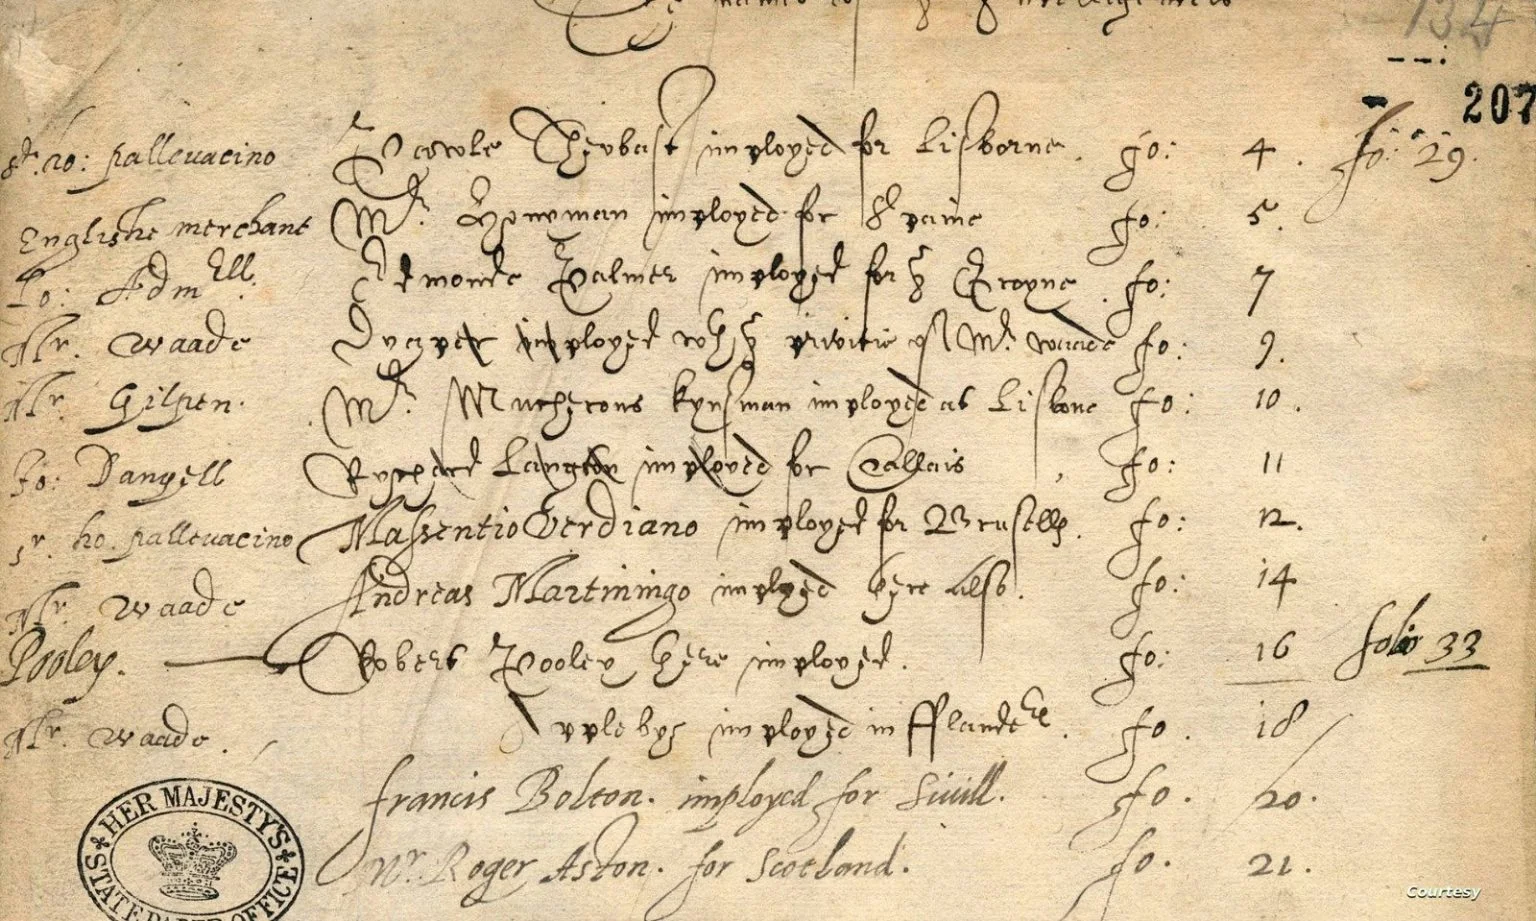 names of yͤ Intelligencers
134
207
Sr. ho: pallevacino Pawle Theobast imployed for Lisborne. fo: 4. fo: 29.
Englishe merchant Mr. Honyman imployed for Spaine fo: 5.
Lo: Admell. Edmonde Palmer imployed for yͤ Groyne. fo: 7
Mr. Waade imployed wth yͤ privitie of Mr. Waade fo: 9.
Mr. Gilpen. Mr. Mucherons kynsman imployed at Lisbone fo: 10.
Jo: Dangell Rychard Langton imployed for Callais, fo: 11
Sr. ho. pallevacino Massentio Verdiano imployed for Brusells. fo: 12.
Mr. Waade Andreas Martiningo imployed here also. fo: 14
Pooley. Robert Pooley here imployed. fo: 16 folio 33
Mr. Waade. Appleby imployed in fflanders. fo. 18
francis Bolton. imployed for Sivill. fo. 20.
Mr. Roger Aston. for Scotland. fo. 21.
HER MAJESTY'S STATE PAPER OFFICE
Courtesy